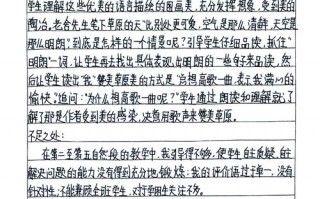 学生理解这些优美的语言描绘的图画美,充分发挥想象,受到美的
陶冶。老舍先生笔下草原的天"比别处更可爱,空气是那么清鲜,天空是
那么明朗"到底是怎样的一个情景呢?引导学生仔细品读,抓住"
明朗"一词,让学生再去找出具体表现出明朗的一些好来品读,然
后让学生读出"我"赞美草原的方式是"总想高歌一曲,表示我满心的
愉快。"追问:"为什么想高歌一曲呢?"学生通过朗读和理解就了
解了那是作者受到美的感染,决意用歌声来赞美草原。
不足之处:
在第二至第五自然段的教学中,我引导得不够,使学生的主质疑、自主
解决问题的能力没有得到充分地锻炼;我的评价语过于单一,没有
针对性;不能兼顾全班学生,对打學用生关注不够。